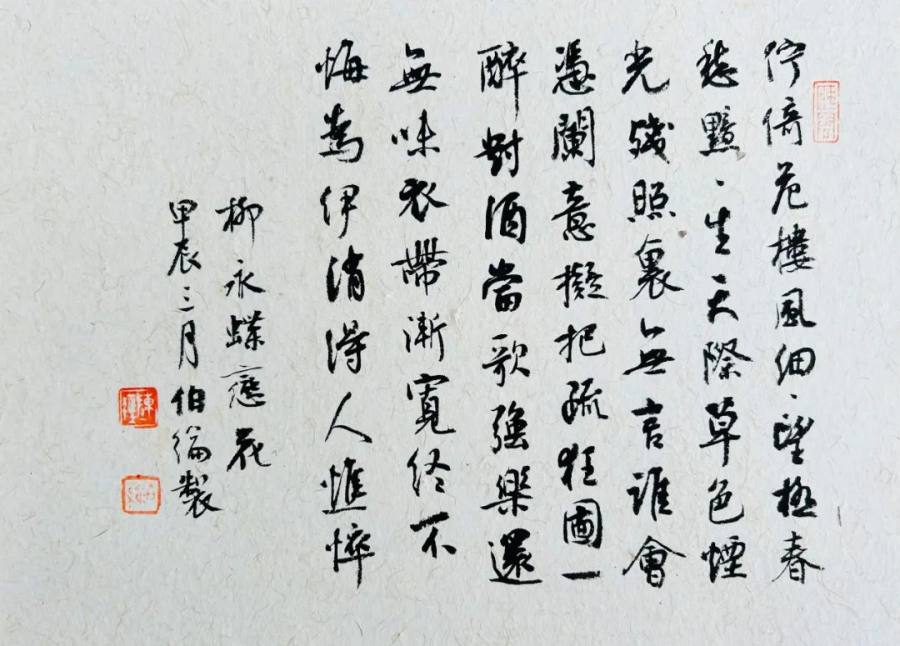 佇倚危樓風細、望極春
愁黯、生天際草色煙
光殘照裏無言誰會
憑闌意擬把疏狂圖一
醉對酒當歌強樂還
無味衣帶漸寬終不
悔為伊消得人憔悴
柳永蝶戀花
甲辰三月伯綸製